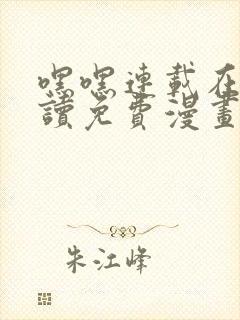 嘿嘿連載在
讀免費漫畫
朱江峰